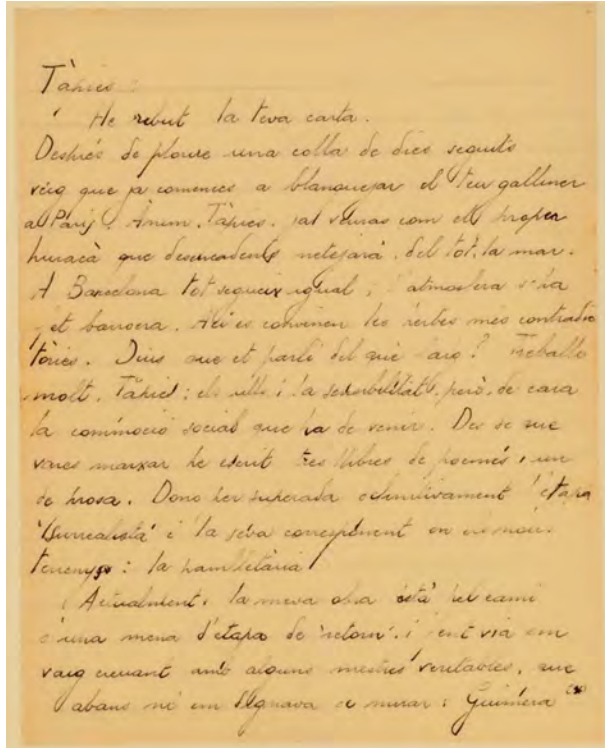 Tàpies:
He rebut la teva carta.
Després de ploure una colla de dies seguits
veig que ja comences a blanquejar el teu galliner
a París. Ànim, Tàpies, tal veuràs com el proper
huracà que desencadenis netejarà, del tot, la mar.
A Barcelona tot segueix igual; l'atmosfera s'ha
fet barroera. Ací es convinen les herbes més contradic
tòries. Dius que et parli del què faig? Treballo
molt, Tàpies; els ulls i la sensibilitat, però, de cara
la commoció social que ha de venir. Des de que
vares marxar he escrit tres llibres de poemes i un
de prosa. Dono per superada definitivament l'etapa
"surrealista" i la seva corresponent en
terrenys: la pamfletària
Actualment, la meva obra està pel camí
d'una mena d'etapa de "retorn", i fent via em
vaig creuant amb alguns mestres veritables, que
abans ni em dignava a mirar: Guimerà